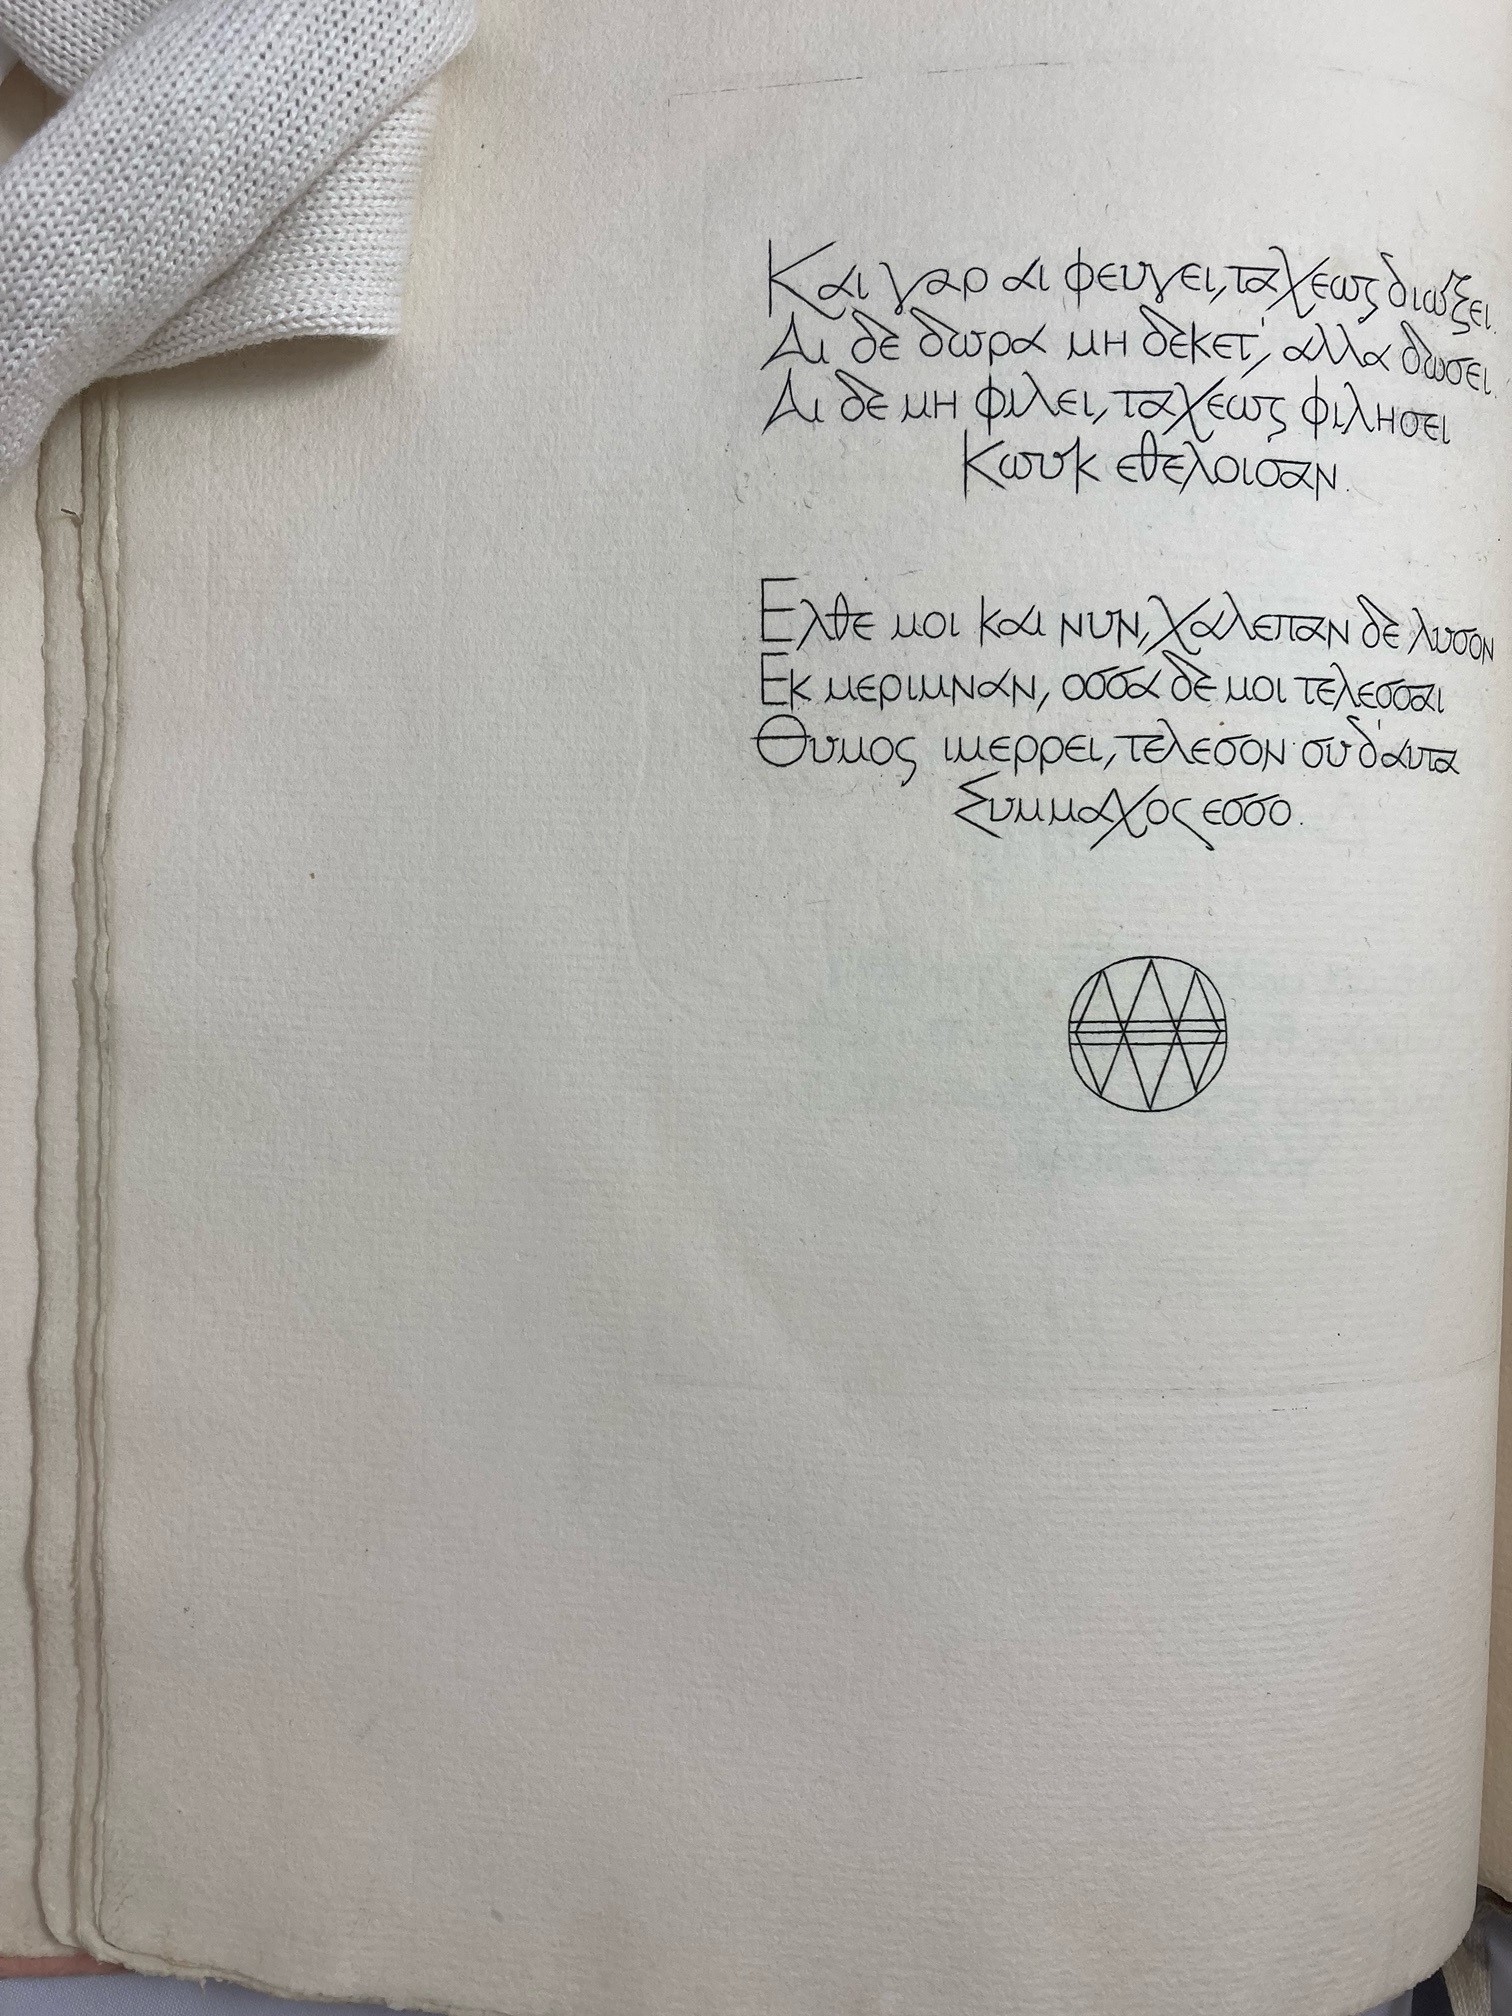 Και γαρ αι φευγει, ταχεως διωξει.
Αι δε δωρα μη δεκετ', αλλα δωσει.
Αι δε μη φιλει, ταχεως φιλησει
Κωυκ εθελοισαν.
Ελθε μοι και νυν, χαλεπαν δε λυσον
Εκ μεριμναν, οσσα δε μοι τελεσσαι
Θυμος ιμερρει, τελεσον· συ δ'αυτα
Ξυμμαχος εσσο.